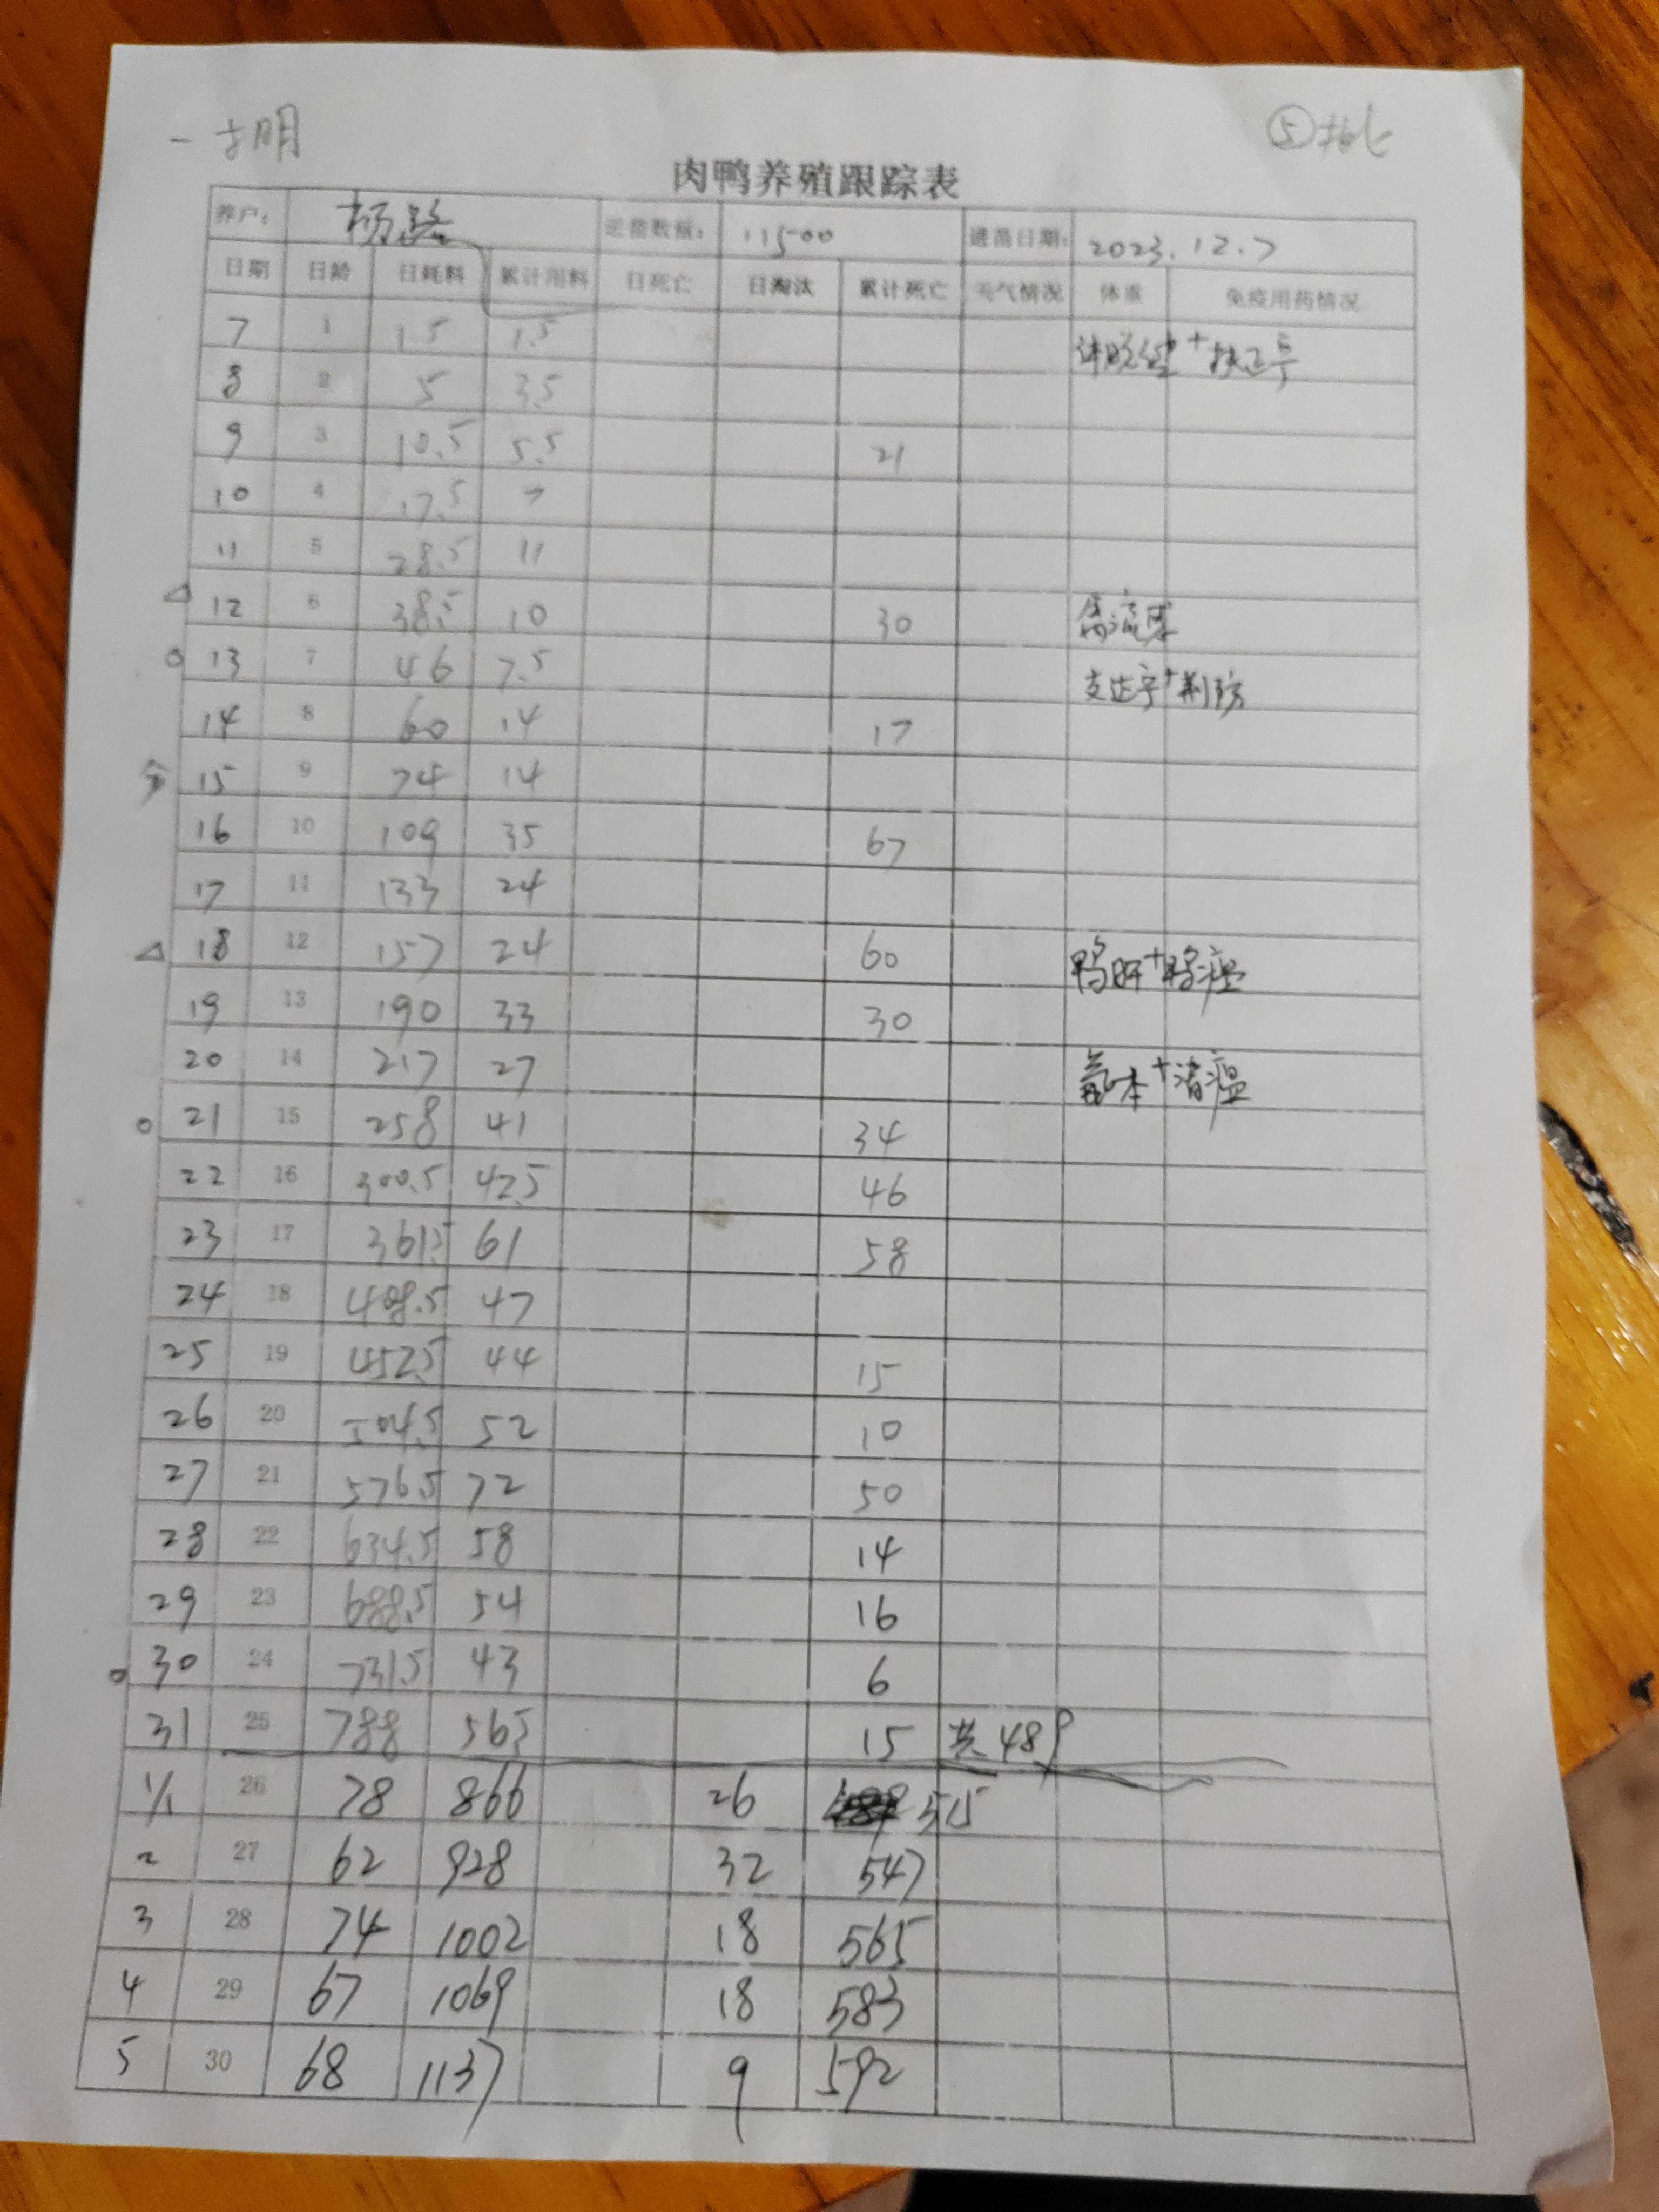 明
⑤
肉鸭养殖跟踪表
养户： 杨 进苗数量： 11500 进苗日期： 2023.12.7
日期 日龄 日耗料 累计用料 日死亡 日淘汰 累计死亡 天气情况 体重 免疫用药情况
7 1 1.5 1.5
8 2 5 3.5
9 3 10.5 5.5 21
10 4 17.5 7
11 5 28.5 11
△ 12 6 38.5 10 30 禽流感
○ 13 7 46 7.5
14 8 60 14 17
15 9 74 14
16 10 109 35 67
17 11 133 24
△ 18 12 157 24 60 鸭肝+鸭瘟
19 13 190 33 30
20 14 217 27 氟本+清瘟
○ 21 15 258 41 34
22 16 300.5 42.5 46
23 17 361.5 61 58
24 18 408.5 47
25 19 452.5 44 15
26 20 504.5 52 10
27 21 576.5 72 50
28 22 634.5 58 14
29 23 688.5 54 16
○ 30 24 731.5 43 6
31 25 788 56.5 15 共489
1/1 26 78 866 26 515
2 27 62 928 32 547
3 28 74 1002 18 565
4 29 67 1069 18 583
5 30 68 1137 9 592